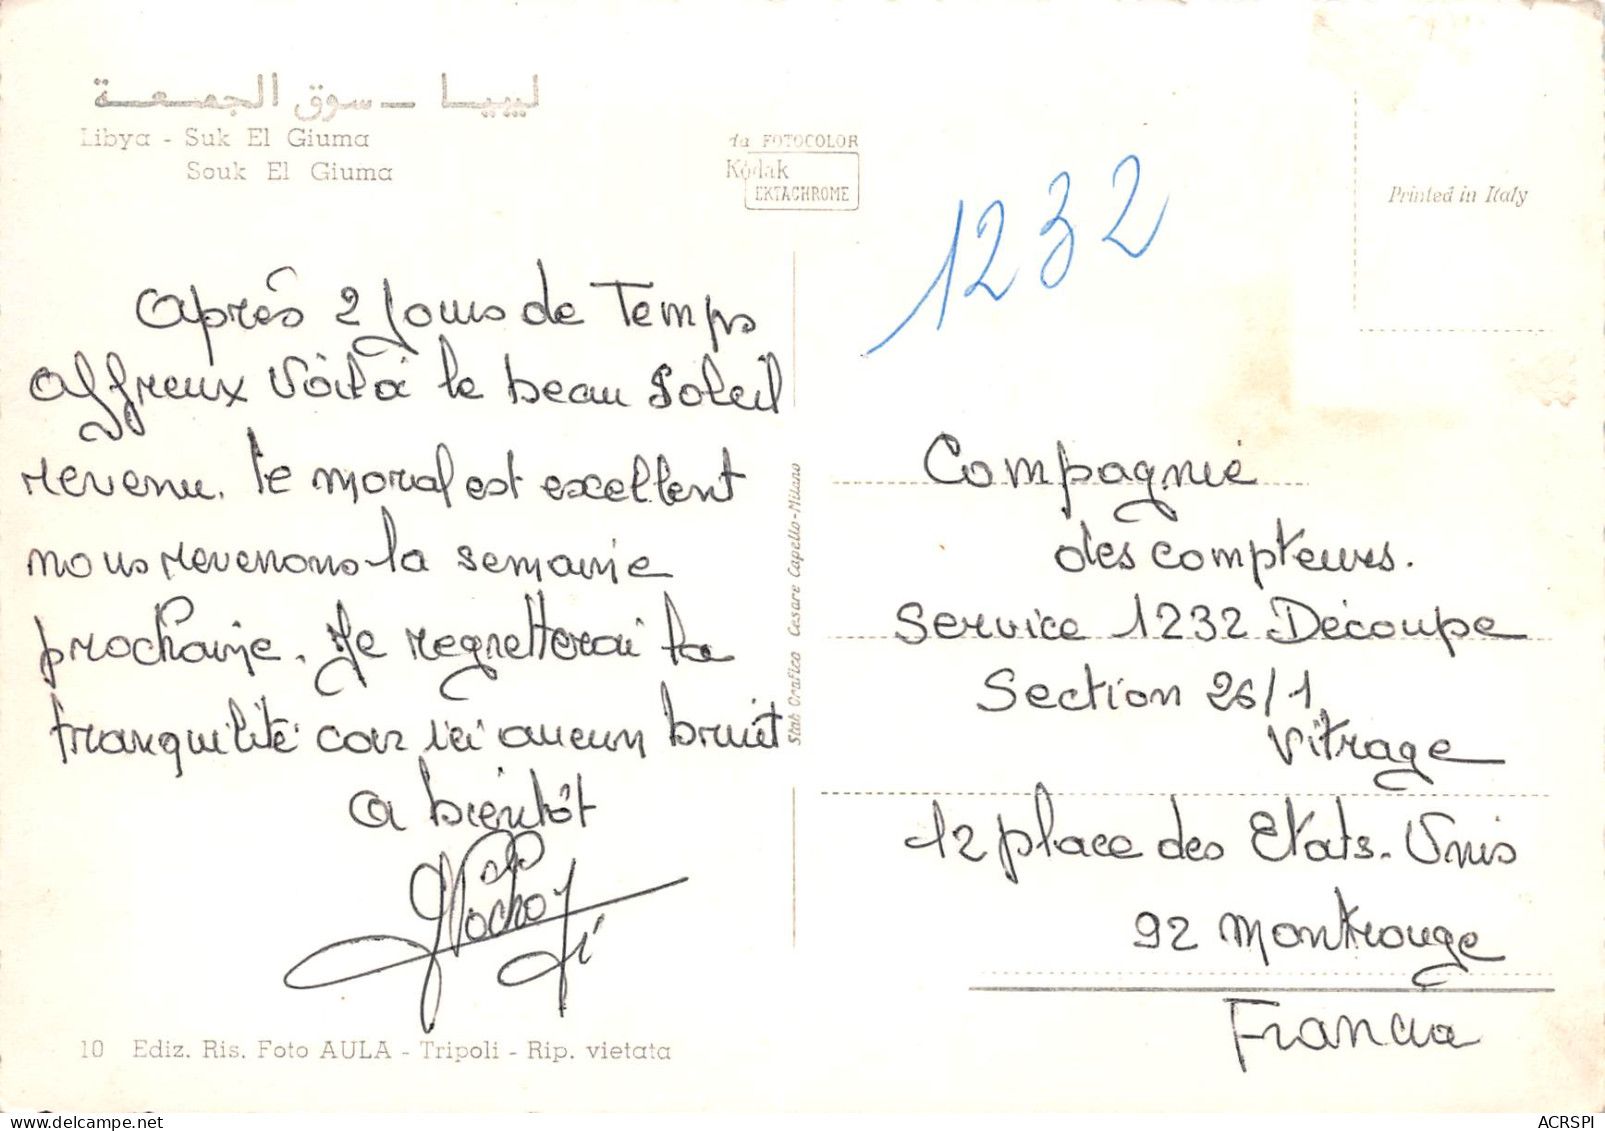 ليبيا - سوق الجمعة
Libya - Suk El Giuma
Souk El Giuma
da FOTOCOLOR
Kodak
EKTACHROME
1232
Printed in Italy
Après 2 jours de Temps
affreux Voilà le beau soleil
revenu. le moral est excellent
nous revenons la semaine
prochaine. Je regretterai la
tranquilité car ici aucun bruit
a bientôt
Compagnie
des compteurs.
Service 1232 Découpe
Section 26/1
Vitrage
12 place des Etats-Unis
92 Montrouge
Francia
Stab Grafico Cesare Capello-Milano
10 Ediz. Ris. Foto AULA - Tripoli - Rip. vietata
ACRSPI